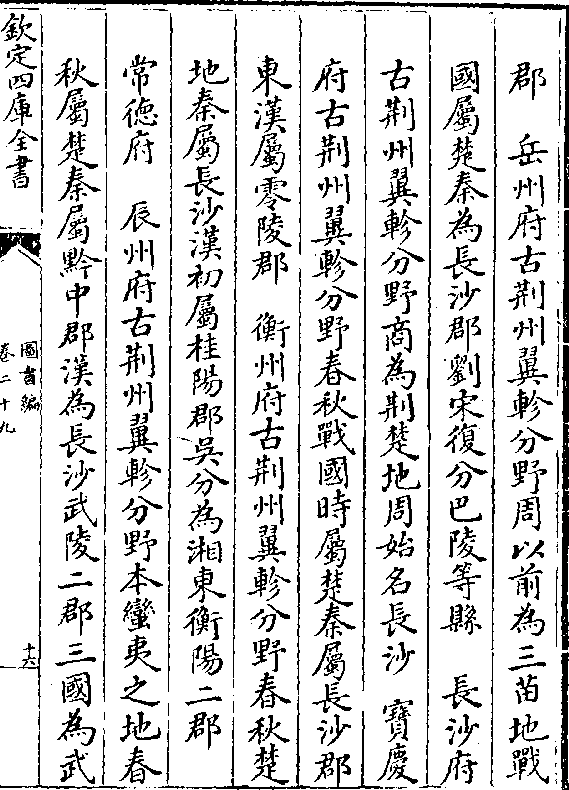 郡　岳州府古荆州翼軫分野周以前為三苗地戰
國屬楚秦為長沙郡劉宋復分巴陵等縣　長沙府
古荆州翼軫分野商為荆楚地周始名長沙　寶慶
府古荆州翼軫分野春秋戰國時屬楚秦屬長沙郡
東漢屬零陵郡　衡州府古荆州翼軫分野春秋楚
地秦屬長沙漢初屬桂陽郡吳分為湘東衡陽二郡
常徳府　辰州府古荆州翼軫分野本蠻夷之地春
秋屬楚秦屬黔中郡漢為長沙武陵二郡三國為武
欽定四庫全書
圖書編
卷二十九
十六